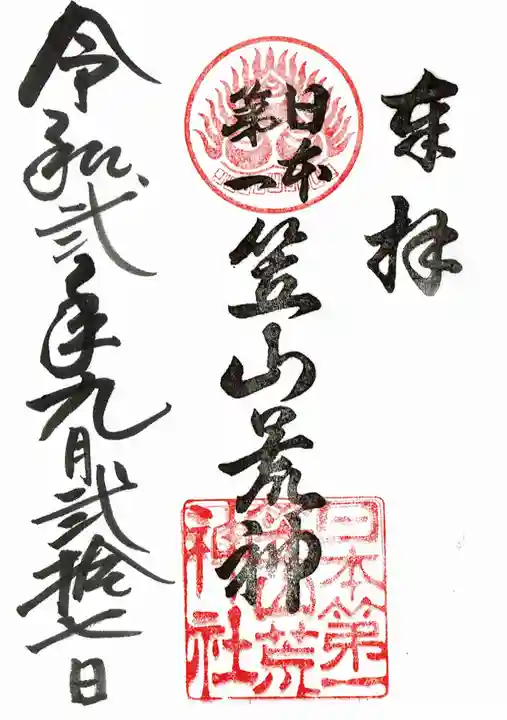 奉拝
日本
第一
笠山荒神
日本第一
笠山荒
神社
令和弐年九月弐拾七日